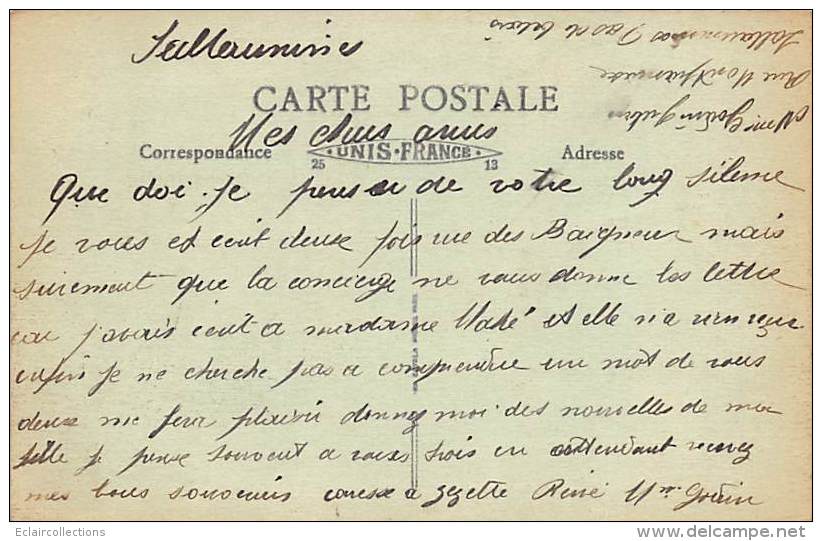 Sallaumines
CARTE POSTALE
Mes chers amis
Correspondance
UNIS-FRANCE
25 13
Adresse
Que doi-je penser de votre long silense
Je vous est ecrit deuse fois rue des Baigneur mais
surement que la concierge ne vous donne les lettre
car j'avais ecrit a madame Mahé et elle n'a rien reçu
enfin je ne cherche pas a comprendre un mot de vous
deuse me fera plaisir donnez moi des nouvelles de ma
fille je pense souvent a vous trois en attendant recevez
mes bons souvenirs caresse a zezette René Mme Gorin
Mme
Rue Montparnasse
Sallaumines Pas de Calais
Eclaircollections